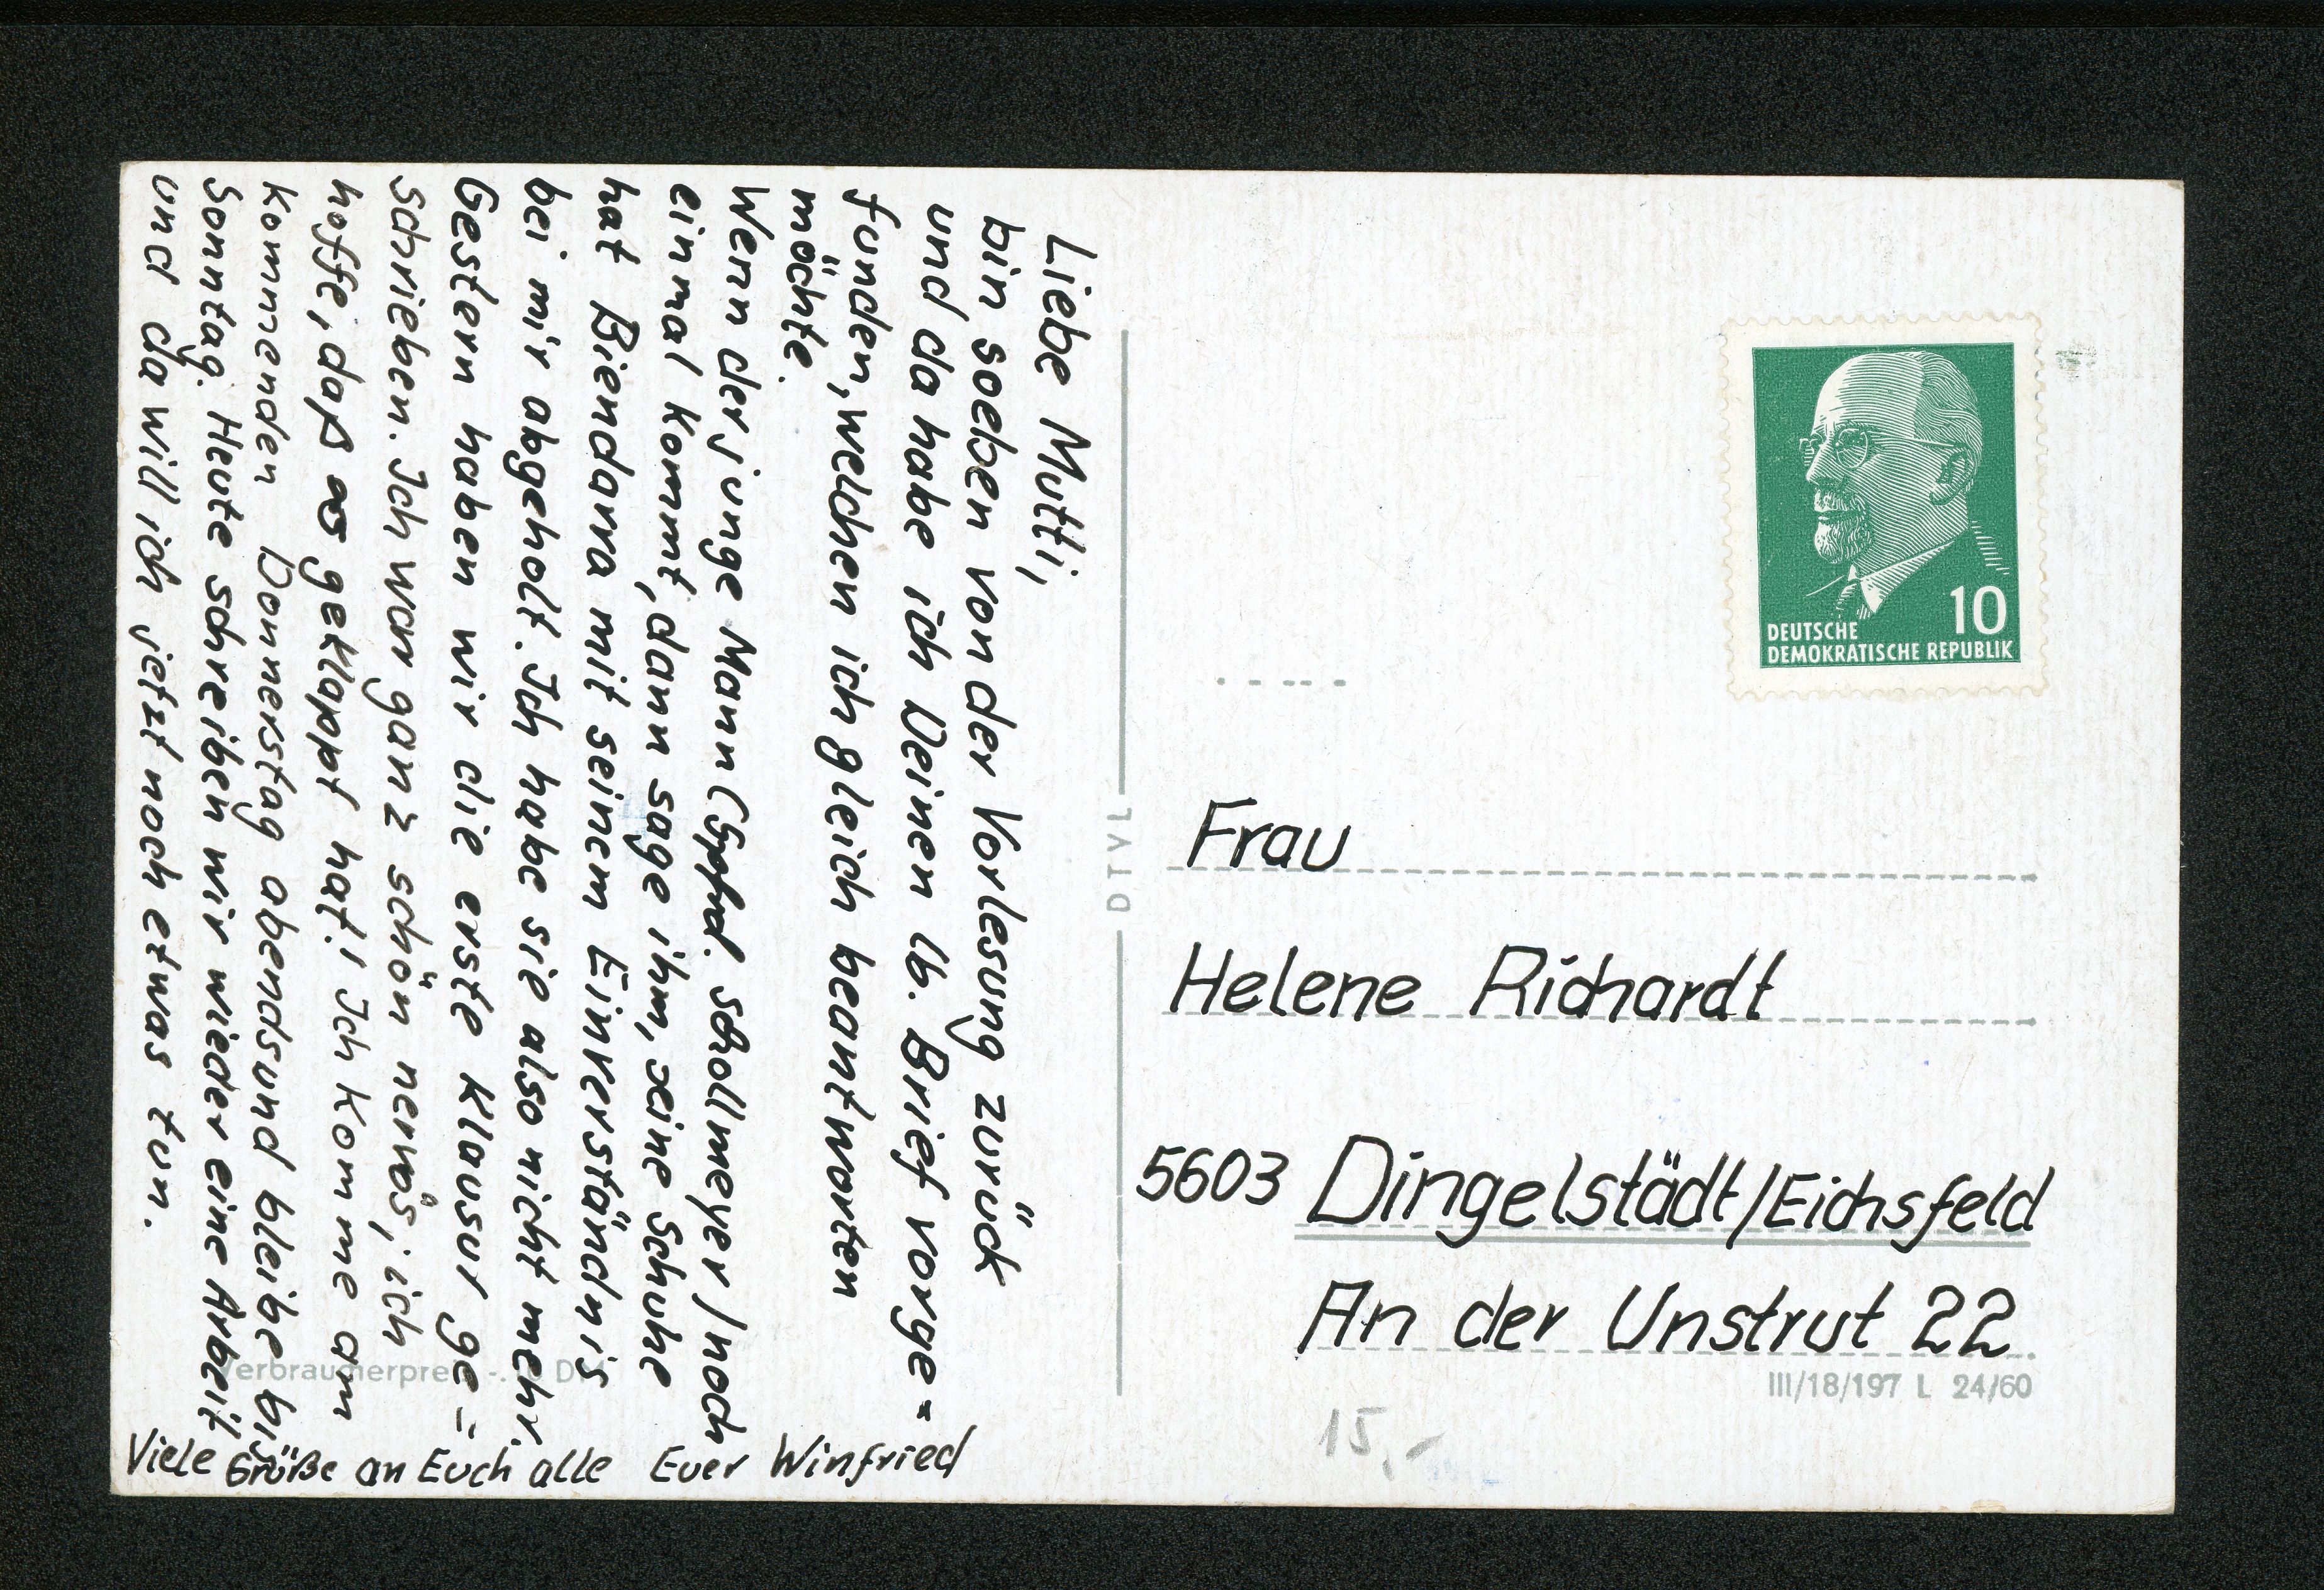 Liebe Mutti,
bin soeben von der Vorlesung zurück
und da habe ich Deinen lb. Brief vorge=
funden, welchen ich gleich beantworten
möchte.
Wenn der junge Mann ( Schollmeyer) noch
einmal kommt, dann sage ihm, seine Schuhe
hat Biendarra mit seinem Einverständnis
bei mir abgeholt. Ich habe sie also nicht mehr.
Gestern haben wir die erste Klausur ge=
schrieben. Ich war ganz schön nervös, ich
hoffe, daß es geklappt hat! Ich komme am
kommenden Donnerstag abends und bleibe bis
Sonntag. Heute schreiben wir wieder eine Arbeit
und da will ich jetzt noch etwas tun.
Viele Grüße an Euch alle Euer Winfried
DTVL
DEUTSCHE
DEMOKRATISCHE REPUBLIK
10
Frau
Helene Richardt
5603 Dingelstädt/Eichsfeld
An der Unstrut 22
III/18/197 L 24/60
15,-